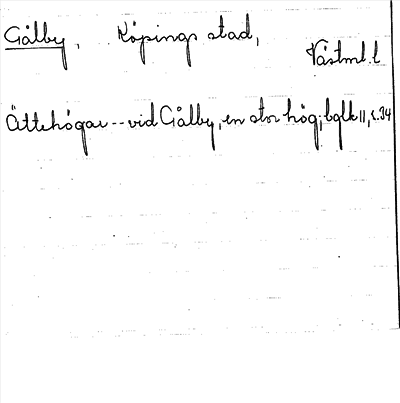 Gålby, Köpings stad,
Västml. l
Ättehögar -- vid Gålby, en stor hög; bglk II, s. 34